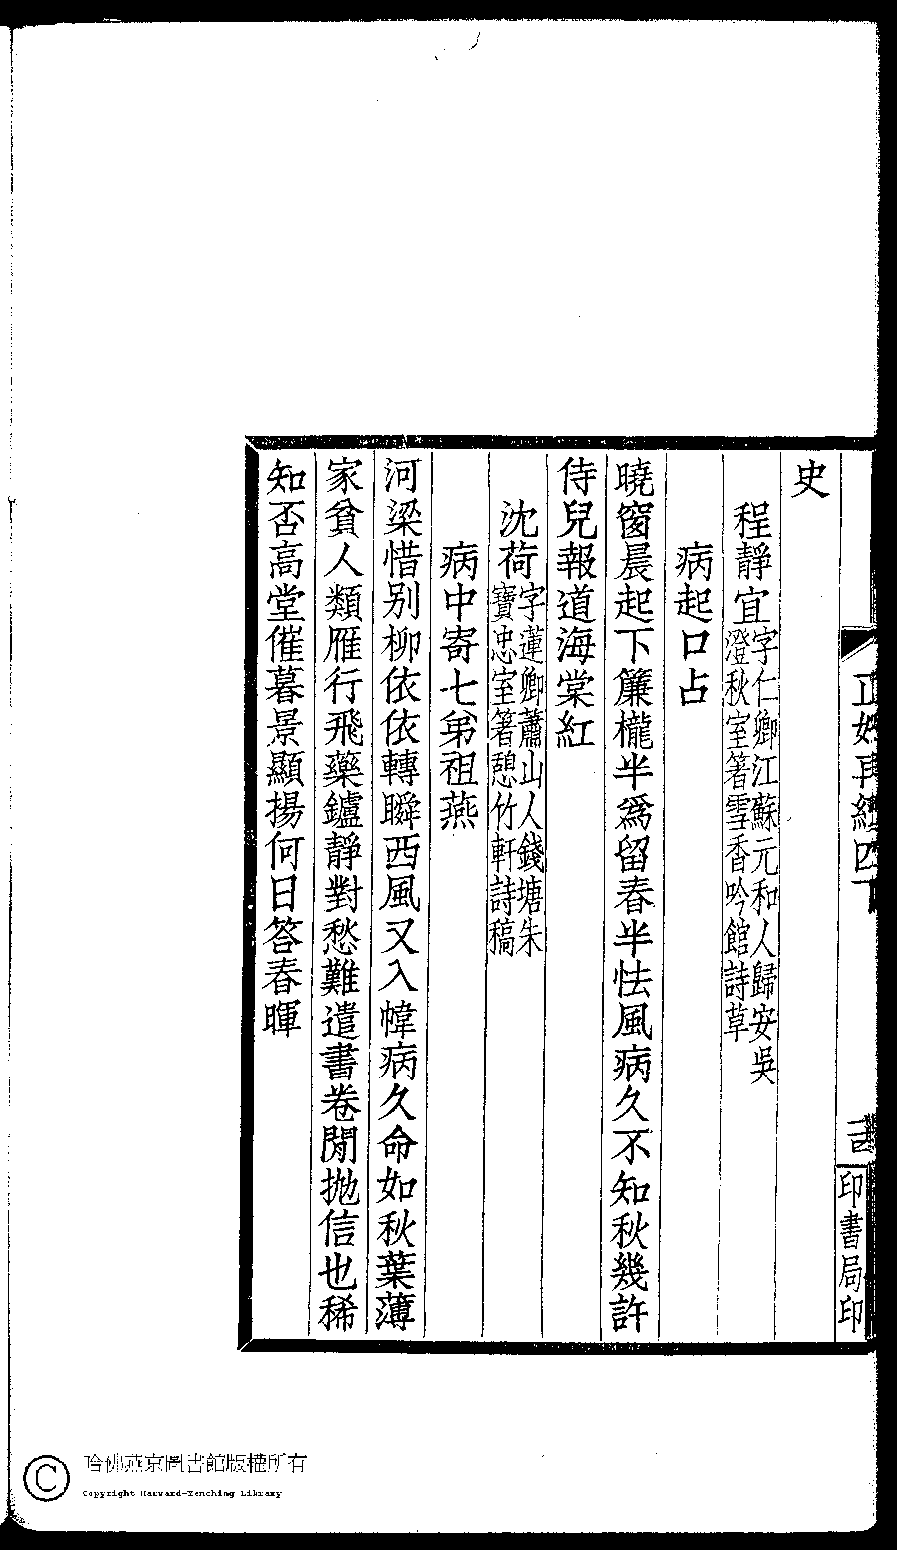 史
程靜宜字仁卿江蘇元和人歸安吳
澄秋室箸雪香吟館詩草
病起口占
曉窗晨起下簾櫳半爲留春半怯風病久不知秋幾許
侍兒報道海棠紅
沈荷字蓮卿蕭山人錢塘朱
寶忠室箸憩竹軒詩稿
病中寄七弟祖燕
河梁惜别柳依依轉瞬西風又入幃病久命如秋葉薄
家貧人類雁行飛藥鑪靜對愁難遣書卷閒拋信也稀
知否高堂催暮景顯揚何日答春暉
印書局印
哈佛燕京圖書館版權所有
Copyright Harvard-Yenching Library